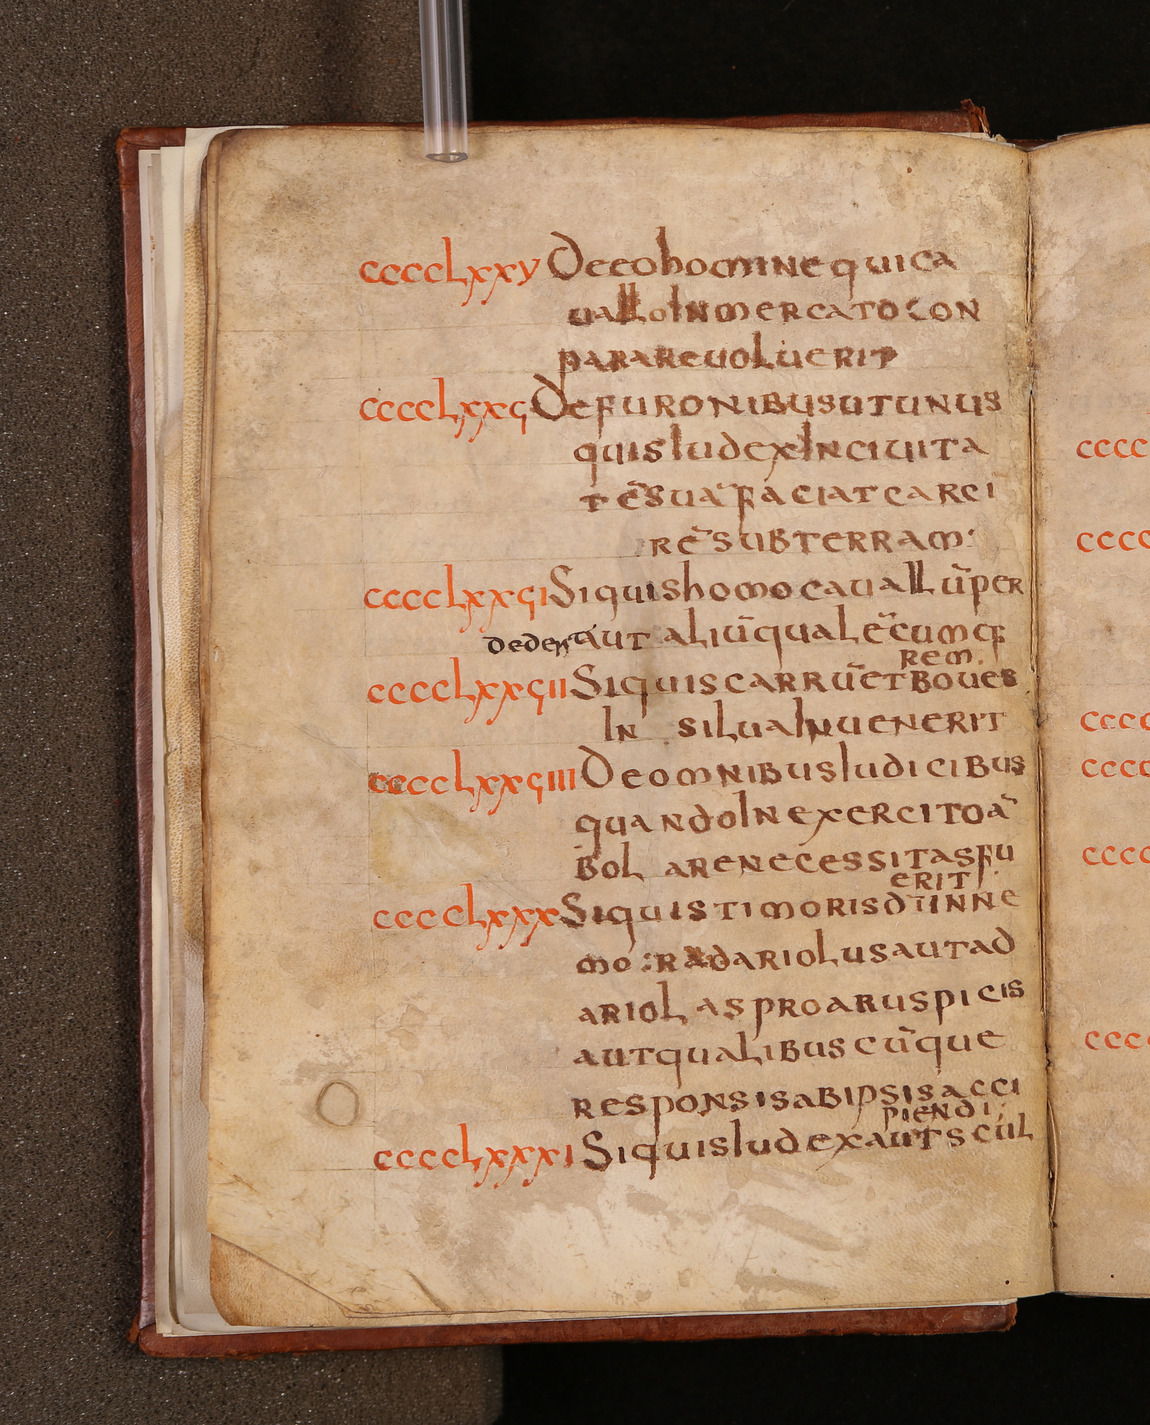 ccccLxxv De eo homine qui ca
uallo In mercato con
parare uoluerit
ccccLxxς De furonibus ut unus
quis Iudex In ciuita
tē suā faciat carci
rē subterram
ccccLxxςI Si quis homo cauallū per
dederit aut aliū qualēcumq;
rem
ccccLxxςII Si quis carrū et boues
In silua Inuenerit
ccccLxxςIII De omnibus Iudicibus
quando In exercito ā
bolare necessitas fu
erit
ccccLxxx Si quis timoris dī inne
mor ad ariolus aut ad
ariolas pro aruspicis
aut qualibus cūque
responsis ab ipsis acci
piendi
ccccLxxxI Si quis Iudex aut scul
cccc
cccc
cccc
cccc
cccc
ccc